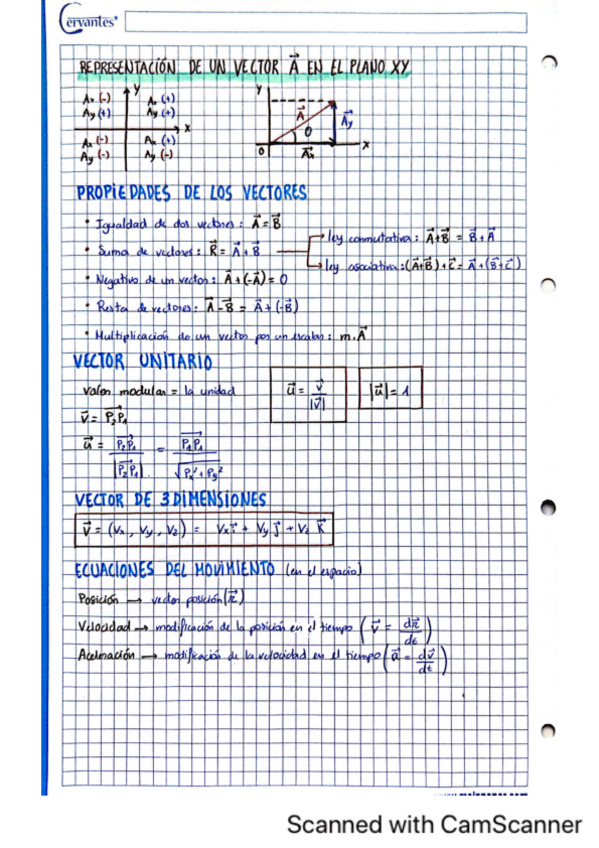 Cervantes
REPRESENTACIÓN DE UN VECTOR A⃗ EN EL PLANO XY
Y
Ax (-) Ax (+)
Ay (+) Ay (+)
X
Ax (-) Ax (+)
Ay (-) Ay (-)
Y
A⃗
A⃗y
θ
O
A⃗x
X
PROPIEDADES DE LOS VECTORES
• Igualdad de dos vectores: A⃗ = B⃗
• Suma de vectores: R⃗ = A⃗ + B⃗
ley conmutativa: A⃗+B⃗ = B⃗+A⃗
ley asociativa: (A⃗+B⃗)+C⃗ = A⃗+(B⃗+C⃗)
• Negativo de un vector: A⃗+(-A⃗) = 0
• Resta de vectores: A⃗-B⃗ = A⃗+(-B⃗)
• Multiplicación de un vector por un escalar: m.A⃗
VECTOR UNITARIO
Valor modular = la unidad
u⃗ = v⃗ / |v⃗|
|u⃗| = 1
v⃗ = P₂P₁
u⃗ = P₂P₁ / |P₂P₁| = P₂P₁ / √(Px² + Py²)
VECTOR DE 3 DIMENSIONES
v⃗ = (Vx, Vy, Vz) = Vx i⃗ + Vy j⃗ + Vz K⃗
ECUACIONES DEL MOVIMIENTO (en el espacio)
Posición → vector posición (r⃗)
Velocidad → modificación de la posición en el tiempo (v⃗ = dr⃗/dt)
Aceleración → modificación de la velocidad en el tiempo (a⃗ = dv⃗/dt)
Scanned with CamScanner